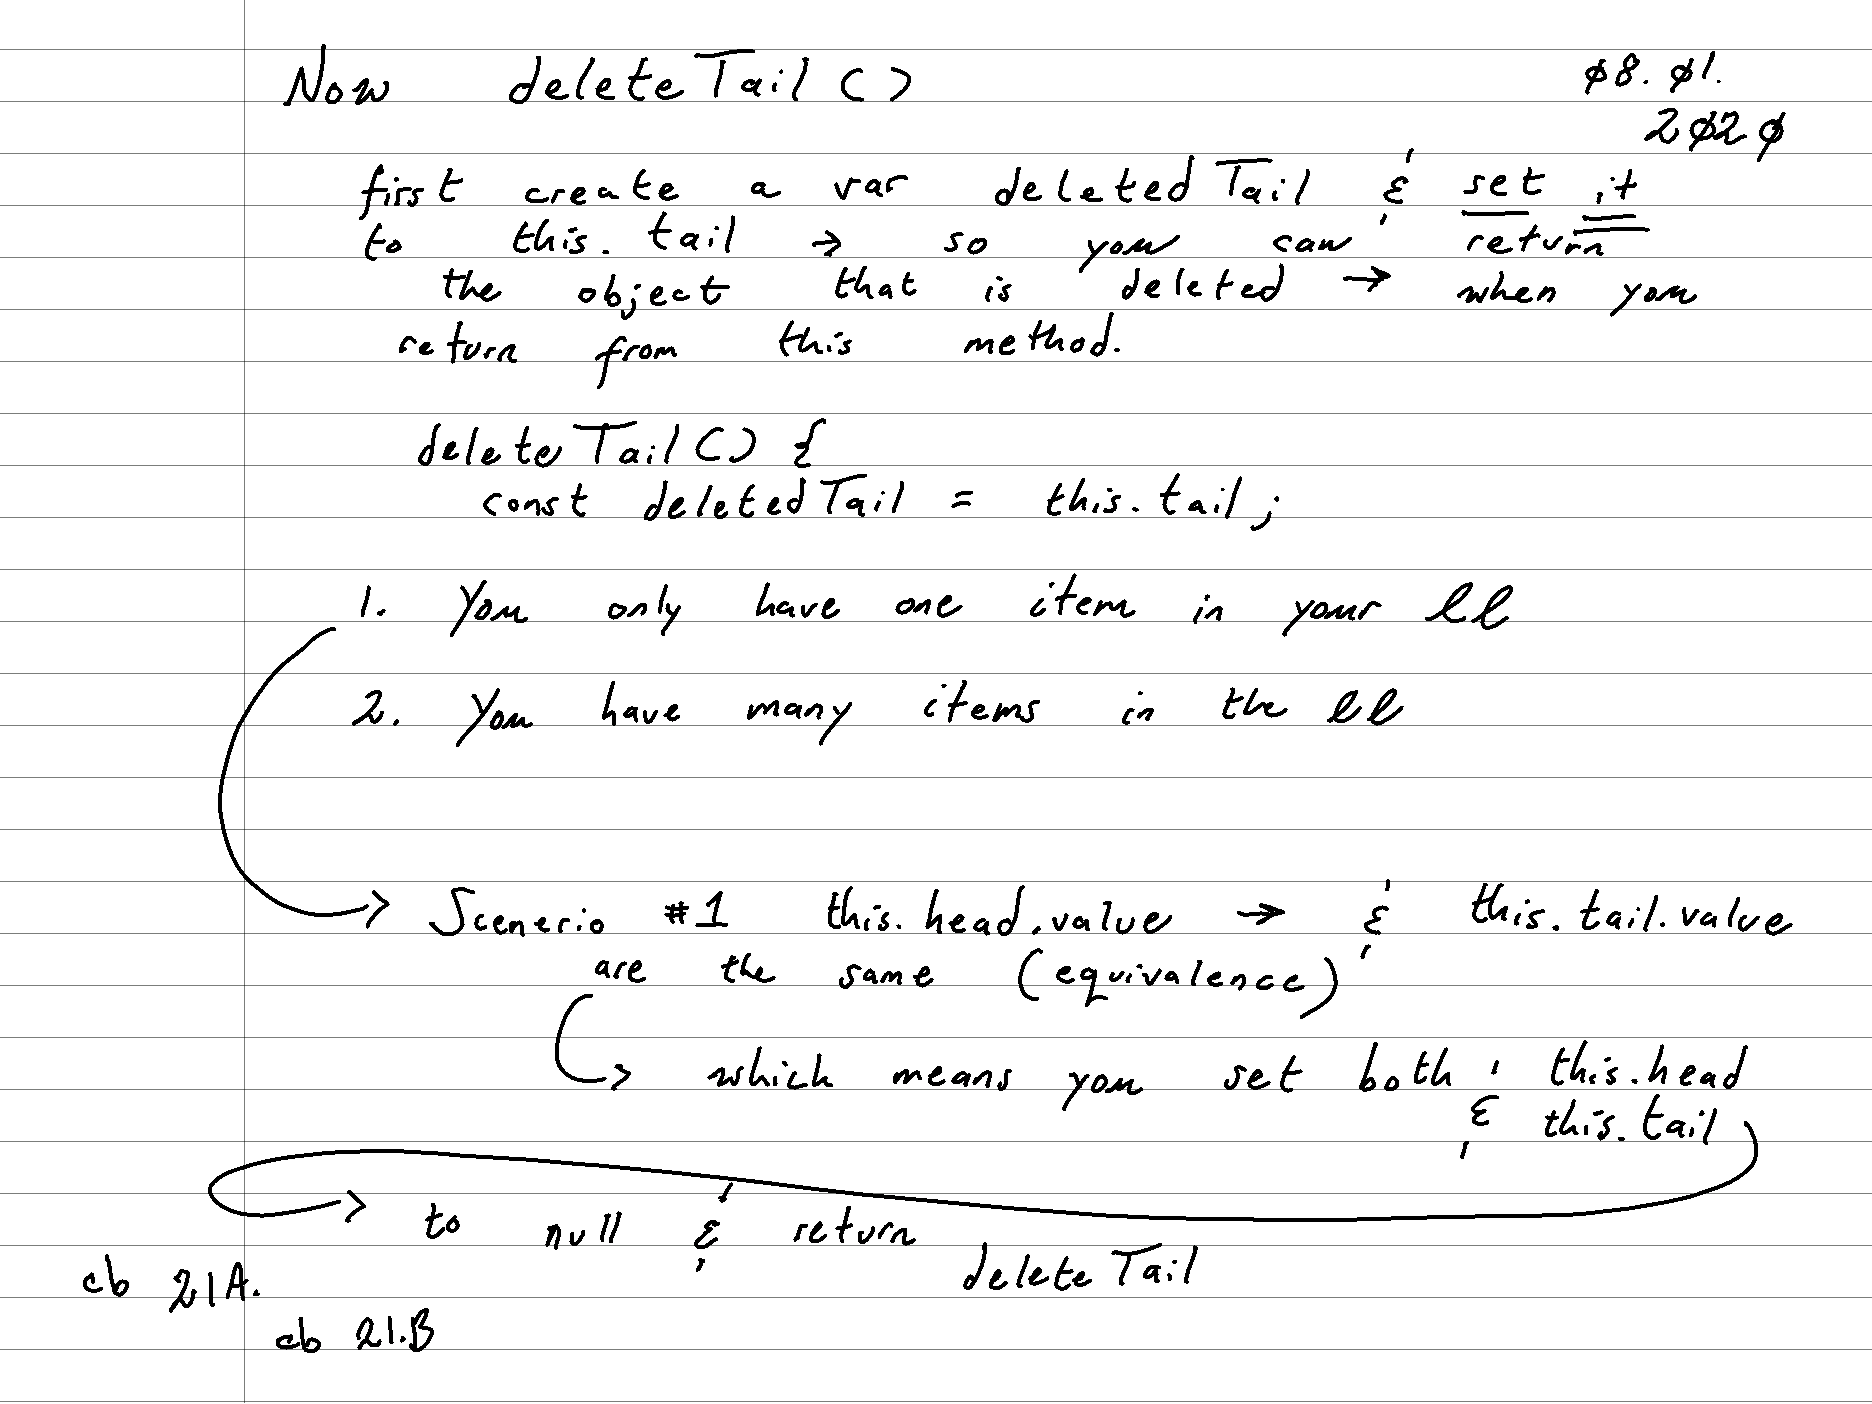 Now deleteTail () 08. 01.
2020
first create a var deletedTail & set it
to this. tail → so you can return
the object that is deleted → when you
return from this method.
deleteTail () {
const deletedTail = this.tail;
1. You only have one item in your ll
2. You have many items in the ll
Scenerio #1 this.head.value → & this.tail.value
are the same (equivalence)
which means you set both this.head
& this.tail
to null & return
deleteTail
cb 21A.
cb 21.B